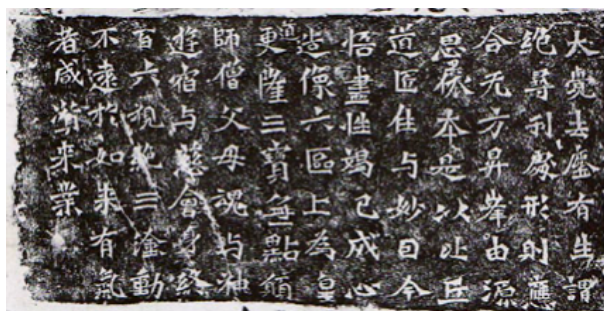 大覺去塵有生謂
絕尋刹形則應
合无方昇峯由源
思依本是以比丘
道匠住与妙因今
悟盡性竭己成心
造像六區上為皇
道更隆三寶無點願
師僧父母魂与神
遊宿与慈會身終
百六視絕三塗動
不遠於如来有氣
者咸蒙来業